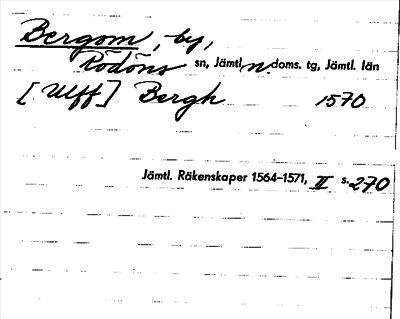 Bergom, by,
Rödöns sn, Jämtl. n. doms. tg, Jämtl. län
[Ulff] Bergh 1570
Jämtl. Räkenskaper 1564-1571, II s. 270